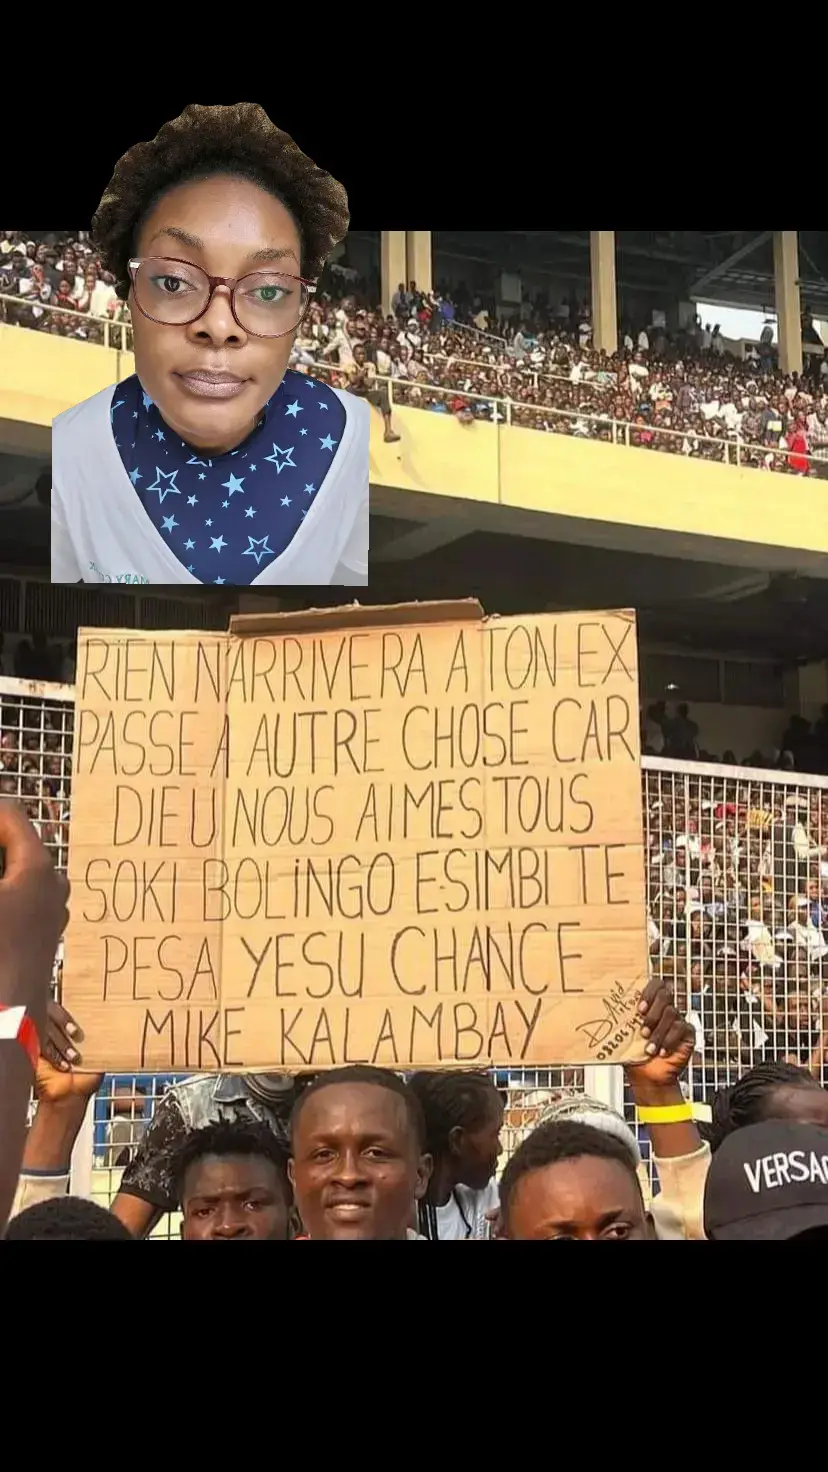 RIEN N'ARRIVERA A TON EX
PASSE A AUTRE CHOSE CAR
DIEU NOUS AIMES TOUS
SOKI BOLINGO ESIMBI TE
PESA YESU CHANCE
MIKE KALAMBAY
VERSA